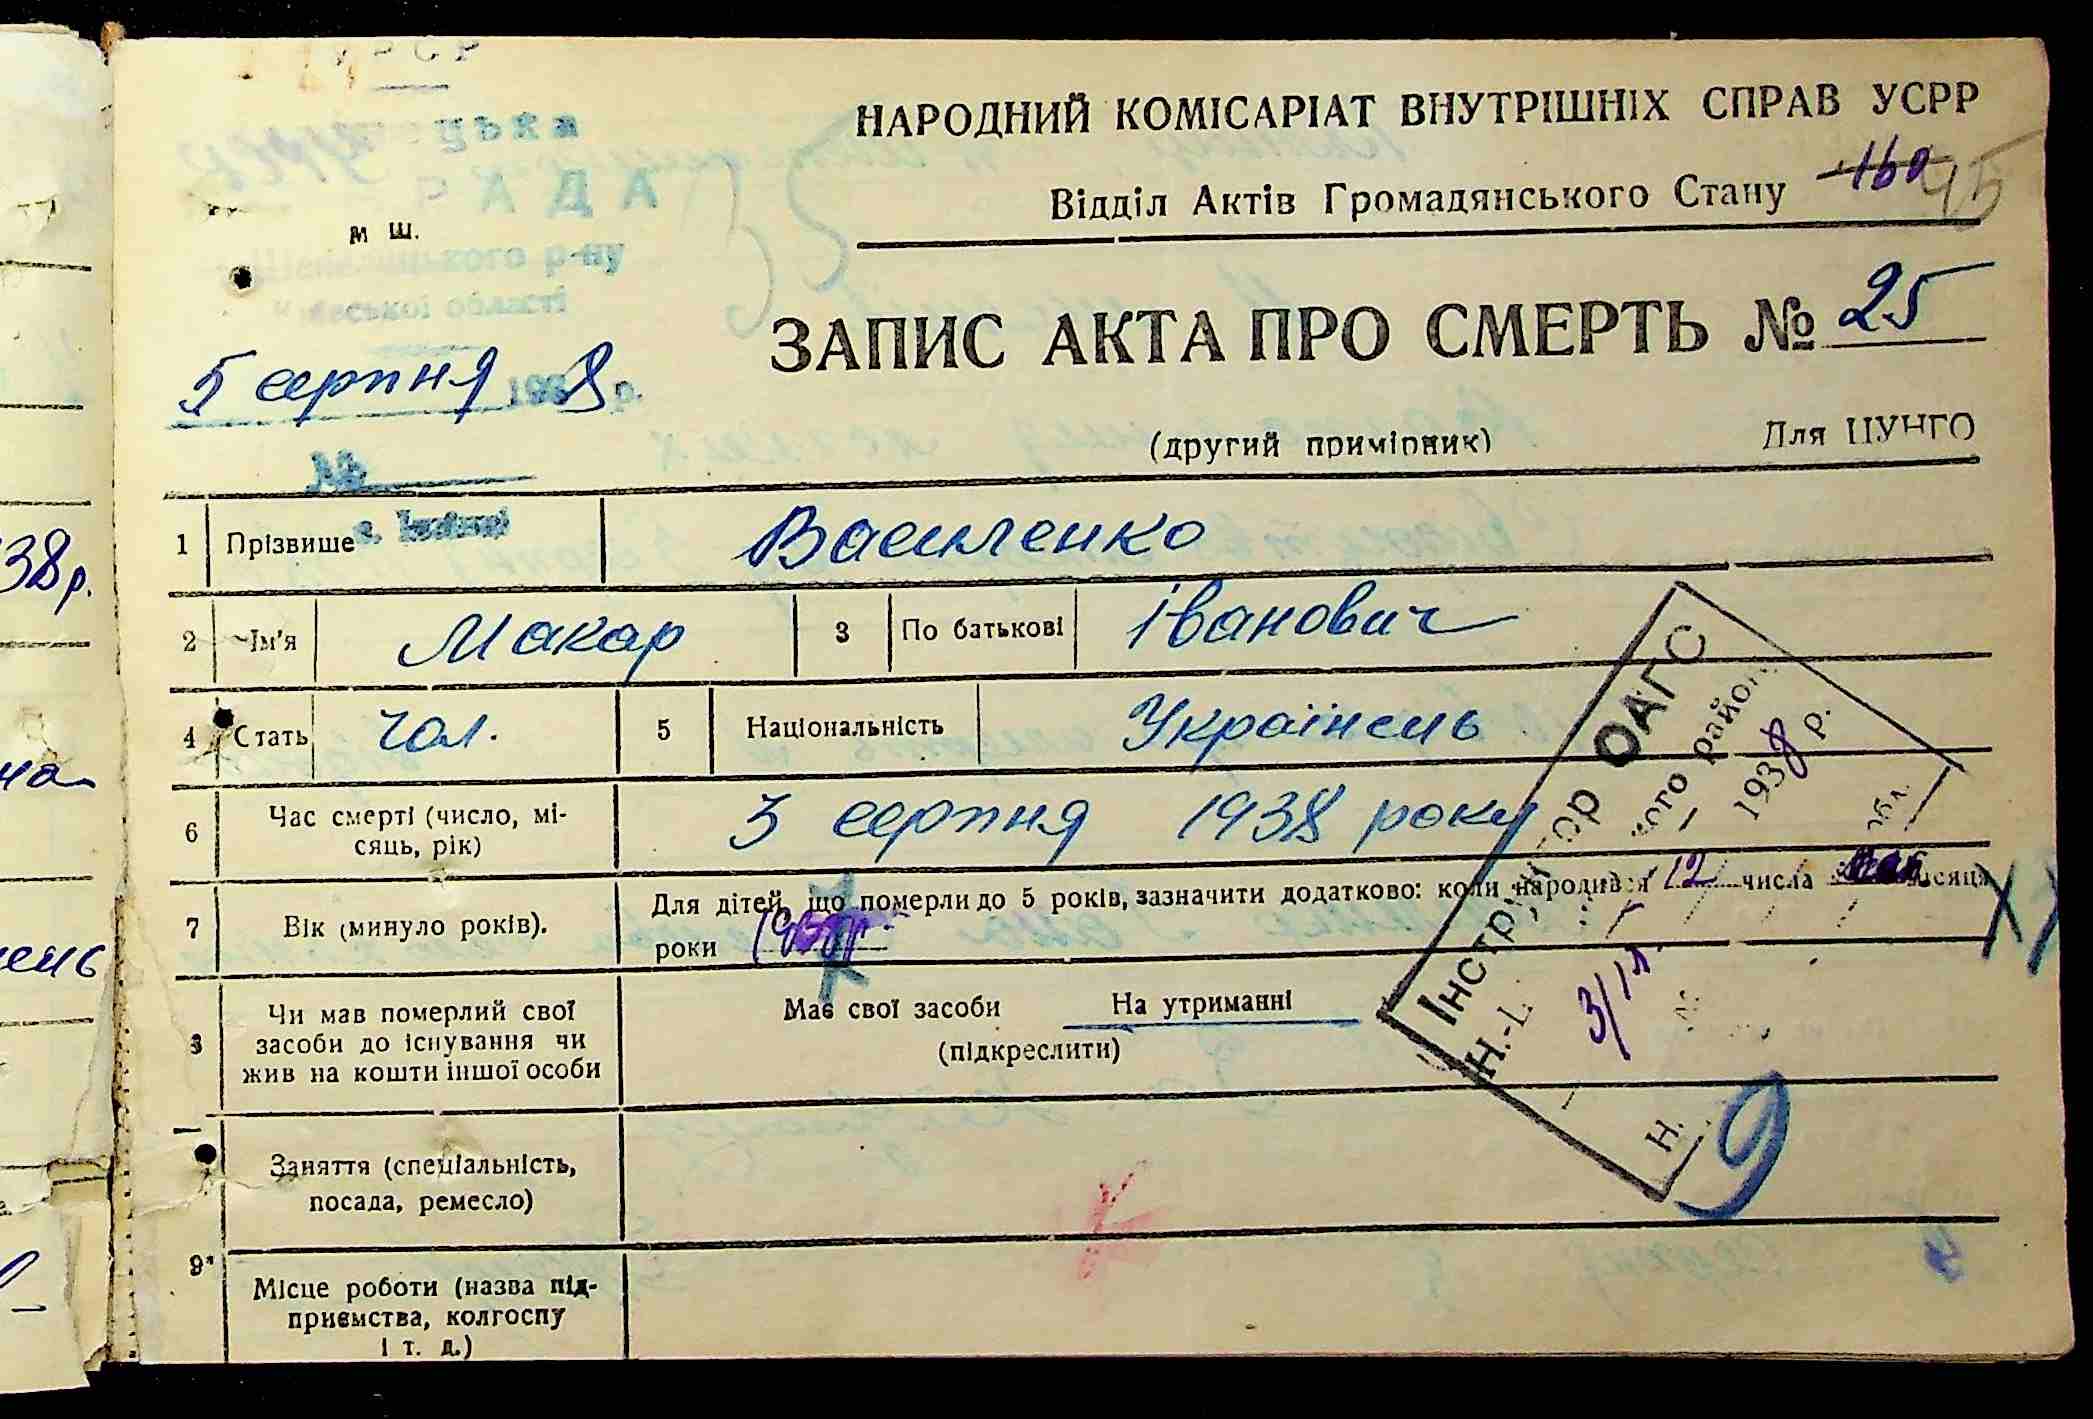 УРСР
РАДА
р-ну
області
м ш.
НАРОДНИЙ КОМІСАРІАТ ВНУТРІШНІХ СПРАВ УСРР
Відділ Актів Громадянського Стану
160 45
ЗАПИС АКТА ПРО СМЕРТЬ № 25
5 серпня 1938 р.
№
(другий примірник)
Для ЦУНГО
1 Прізвище Василенко
2 Ім'я Макар 3 По батькові Іванович
4 Стать чол. 5 Національність Українець
6 Час смерті (число, мі-
сяць, рік) 3 серпня 1938 року
7 Вік (минуло років).
Для дітей, що померли до 5 років, зазначити додатково: коли народився 12 числа місяця
роки
8 Чи мав померлий свої
засоби до існування чи
жив на кошти іншої особи
Має свої засоби На утриманні
(підкреслити)
Заняття (спеціальність,
посада, ремесло)
9
Місце роботи (назва під-
приємства, колгоспу
і т. д.)
Інструктор ОАГС
Н.-І. ного району
1938 р.
обл.
Н.
9
38р.